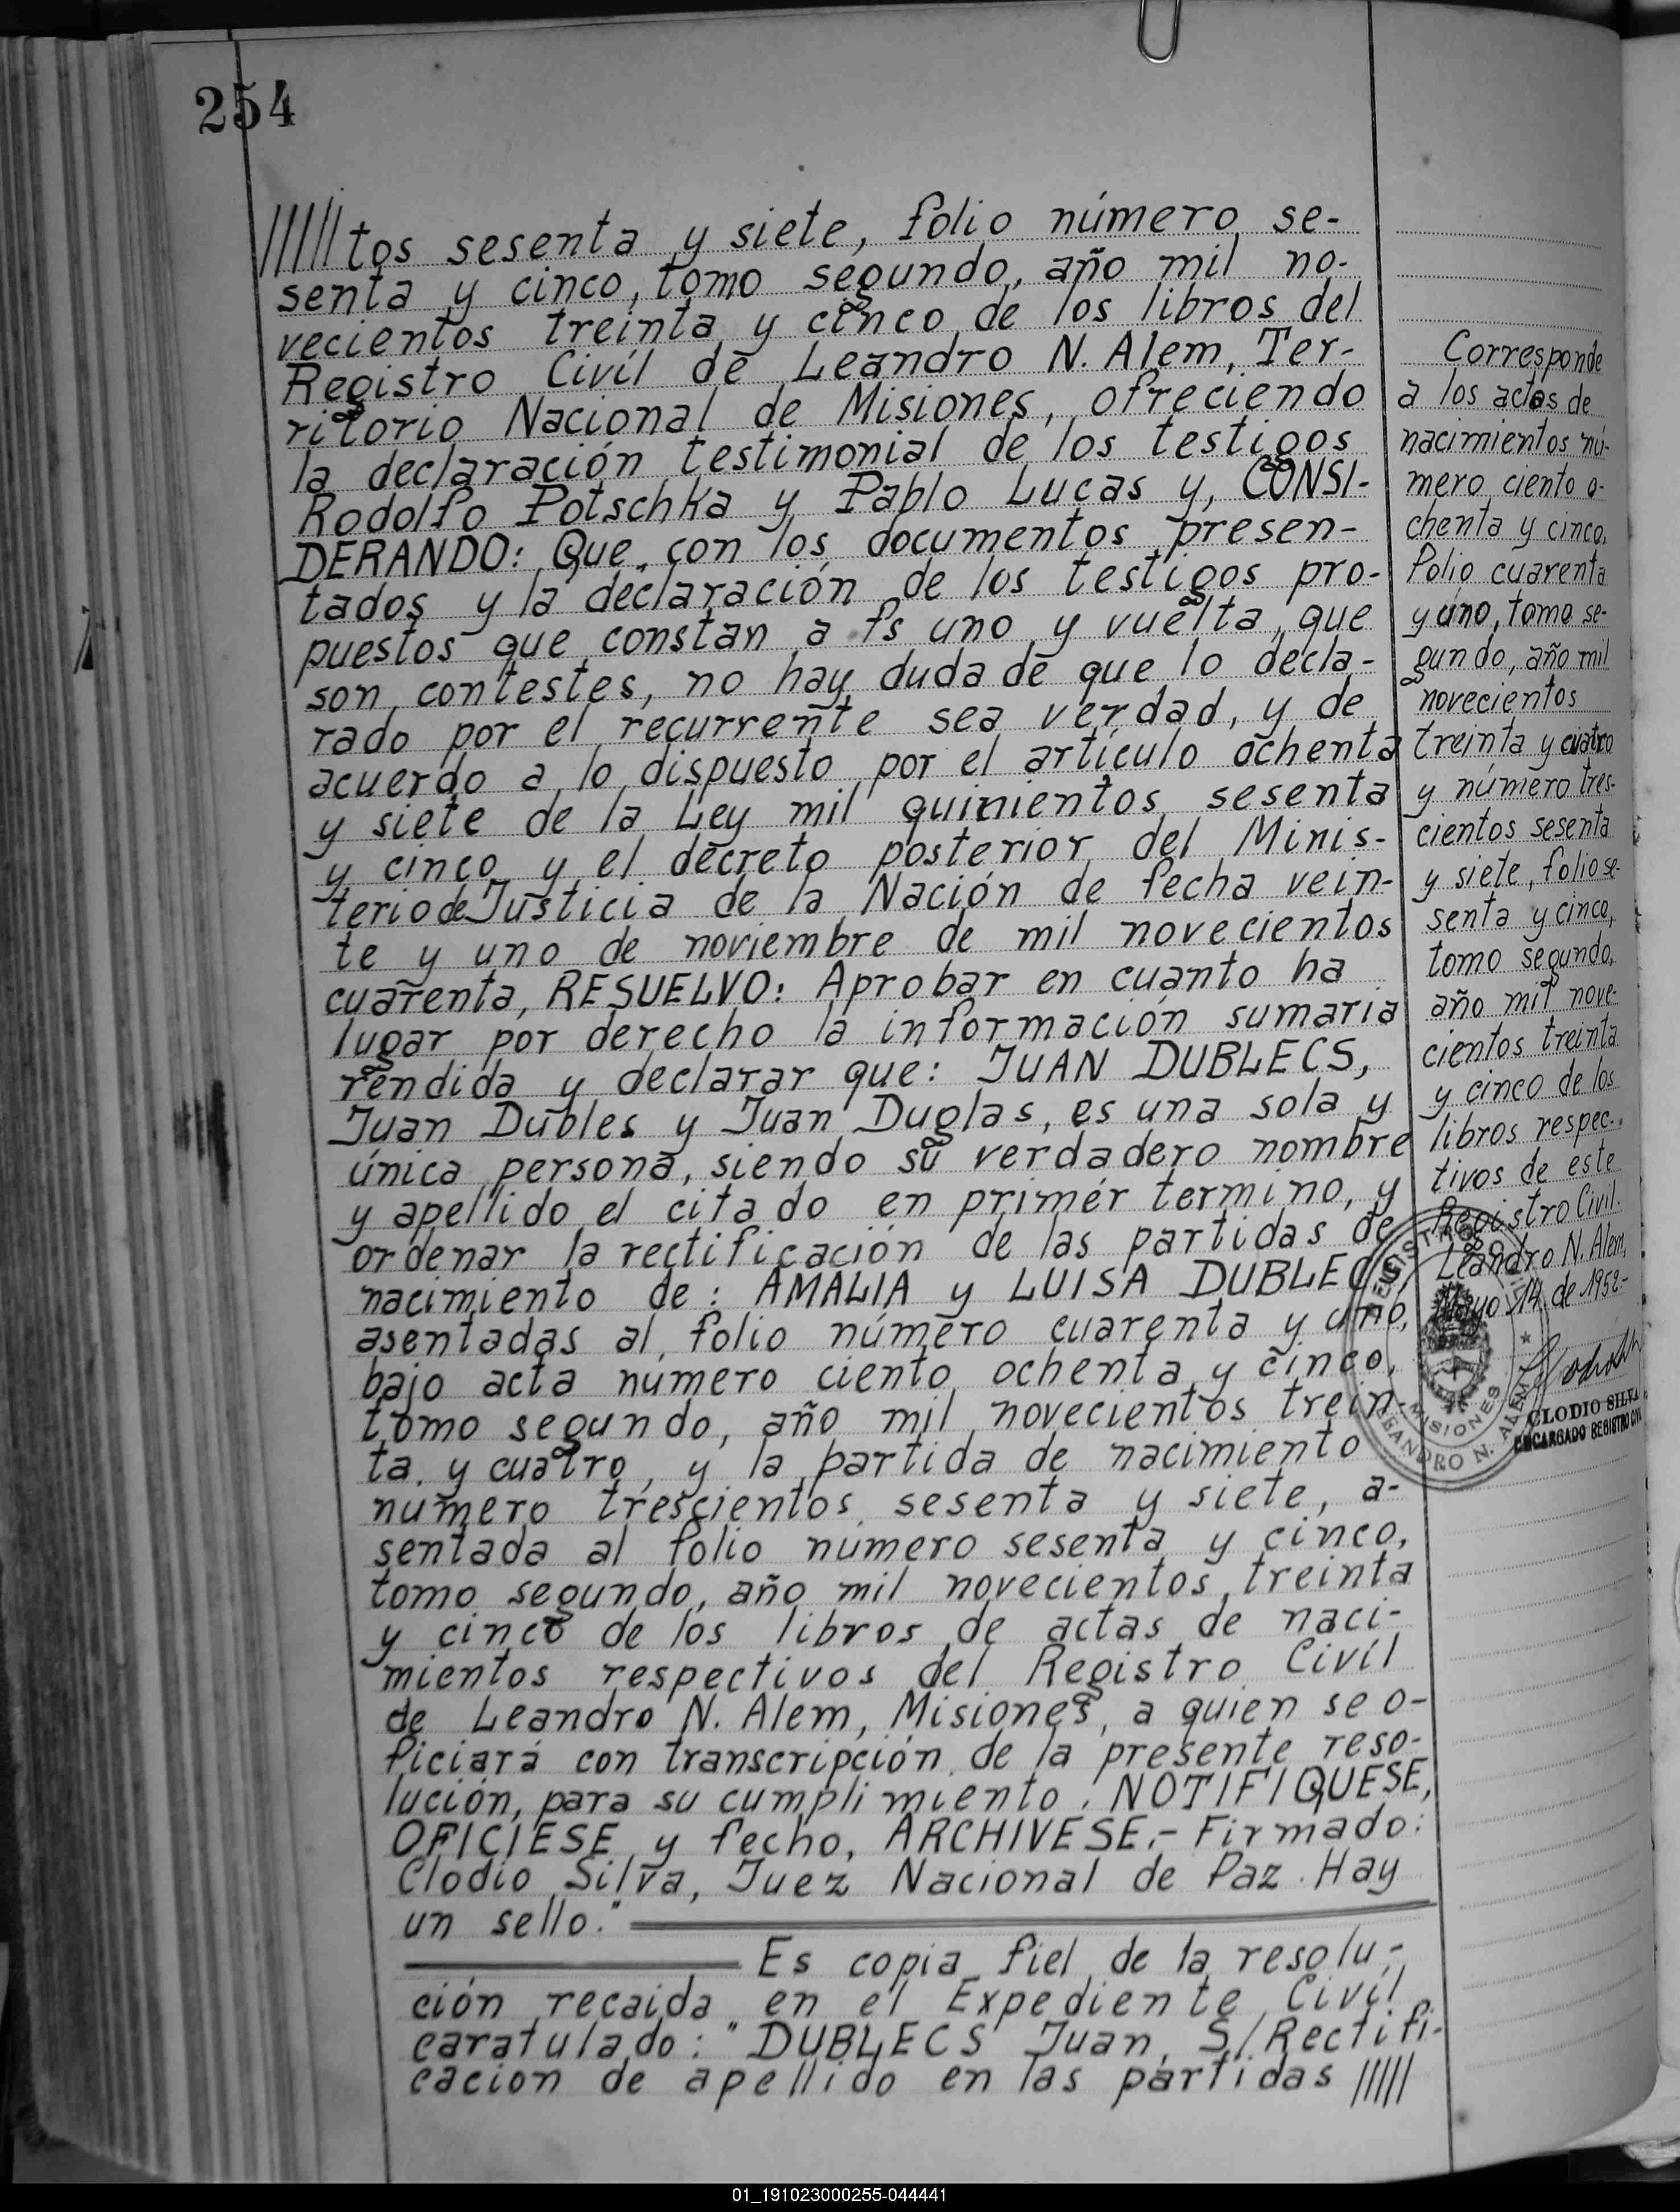 254
/////tos sesenta y siete, folio número se-
senta y cinco, tomo segundo, año mil no-
vecientos treinta y cinco de los libros del
Registro Civíl de Leandro N. Alem, Ter-
ritorio Nacional de Misiones, ofreciendo
la declaración testimonial de los testigos
Rodolfo Potschka y Pablo Lucas y, CONSI-
DERANDO: Que, con los documentos presen-
tados y la declaración de los testigos pro-
puestos que constan a fs uno y vuelta, que
son contestes, no hay duda de que lo decla-
rado por el recurrente sea verdad, y de
acuerdo a lo dispuesto por el artículo ochenta
y siete de la Ley mil quinientos sesenta
y cinco y el decreto posterior del Minis-
terio de Justicia de la Nación de fecha vein-
te y uno de noviembre de mil novecientos
cuarenta, RESUELVO: Aprobar en cuanto ha
lugar por derecho la información sumaria
rendida y declarar que: JUAN DUBLECS,
Juan Dubles y Juan Duglas, es una sola y
única persona, siendo su verdadero nombre
y apellido el citado en primér termino, y
ordenar la rectificación de las partidas de
nacimiento de: AMALIA y LUISA DUBLECS,
asentadas al folio número cuarenta y uno,
bajo acta número ciento ochenta y cinco,
tomo segundo, año mil novecientos trein-
ta y cuatro, y la partida de nacimiento
numero trescientos sesenta y siete, a-
sentada al folio número sesenta y cinco,
tomo segundo, año mil novecientos treinta
y cinco de los libros de actas de naci-
mientos respectivos del Registro Civíl
de Leandro N. Alem, Misiones, a quien se o-
ficiará con transcripción de la presente reso-
lución, para su cumplimiento. NOTIFIQUESE,
OFICIESE y fecho, ARCHIVESE.- Firmado:
Clodio Silva, Juez Nacional de Paz. Hay
un sello."
Es copia fiel de la resolu-
ción recaida en el Expediente Civíl
caratulado: "DUBLECS Juan, S/Rectifi-
cacion de apellido en las partidas /////
Corresponde
a los actas de
nacimientos nú-
mero ciento o-
chenta y cinco,
folio cuarenta
y uno, tomo se-
gundo, año mil
novecientos
treinta y cuatro
y número tres-
cientos sesenta
y siete, folio se-
senta y cinco,
tomo segundo,
año mil nove-
cientos treinta
y cinco de los
libros respec-
tivos de este
Registro Civil.
Leandro N. Alem,
Mayo 14 de 1952-
REGISTRO CIVIL
MISIONES
LEANDRO N. ALEM
CLODIO SILVA
ENCARGADO REGISTRO CIVIL
01_191023000255-044441